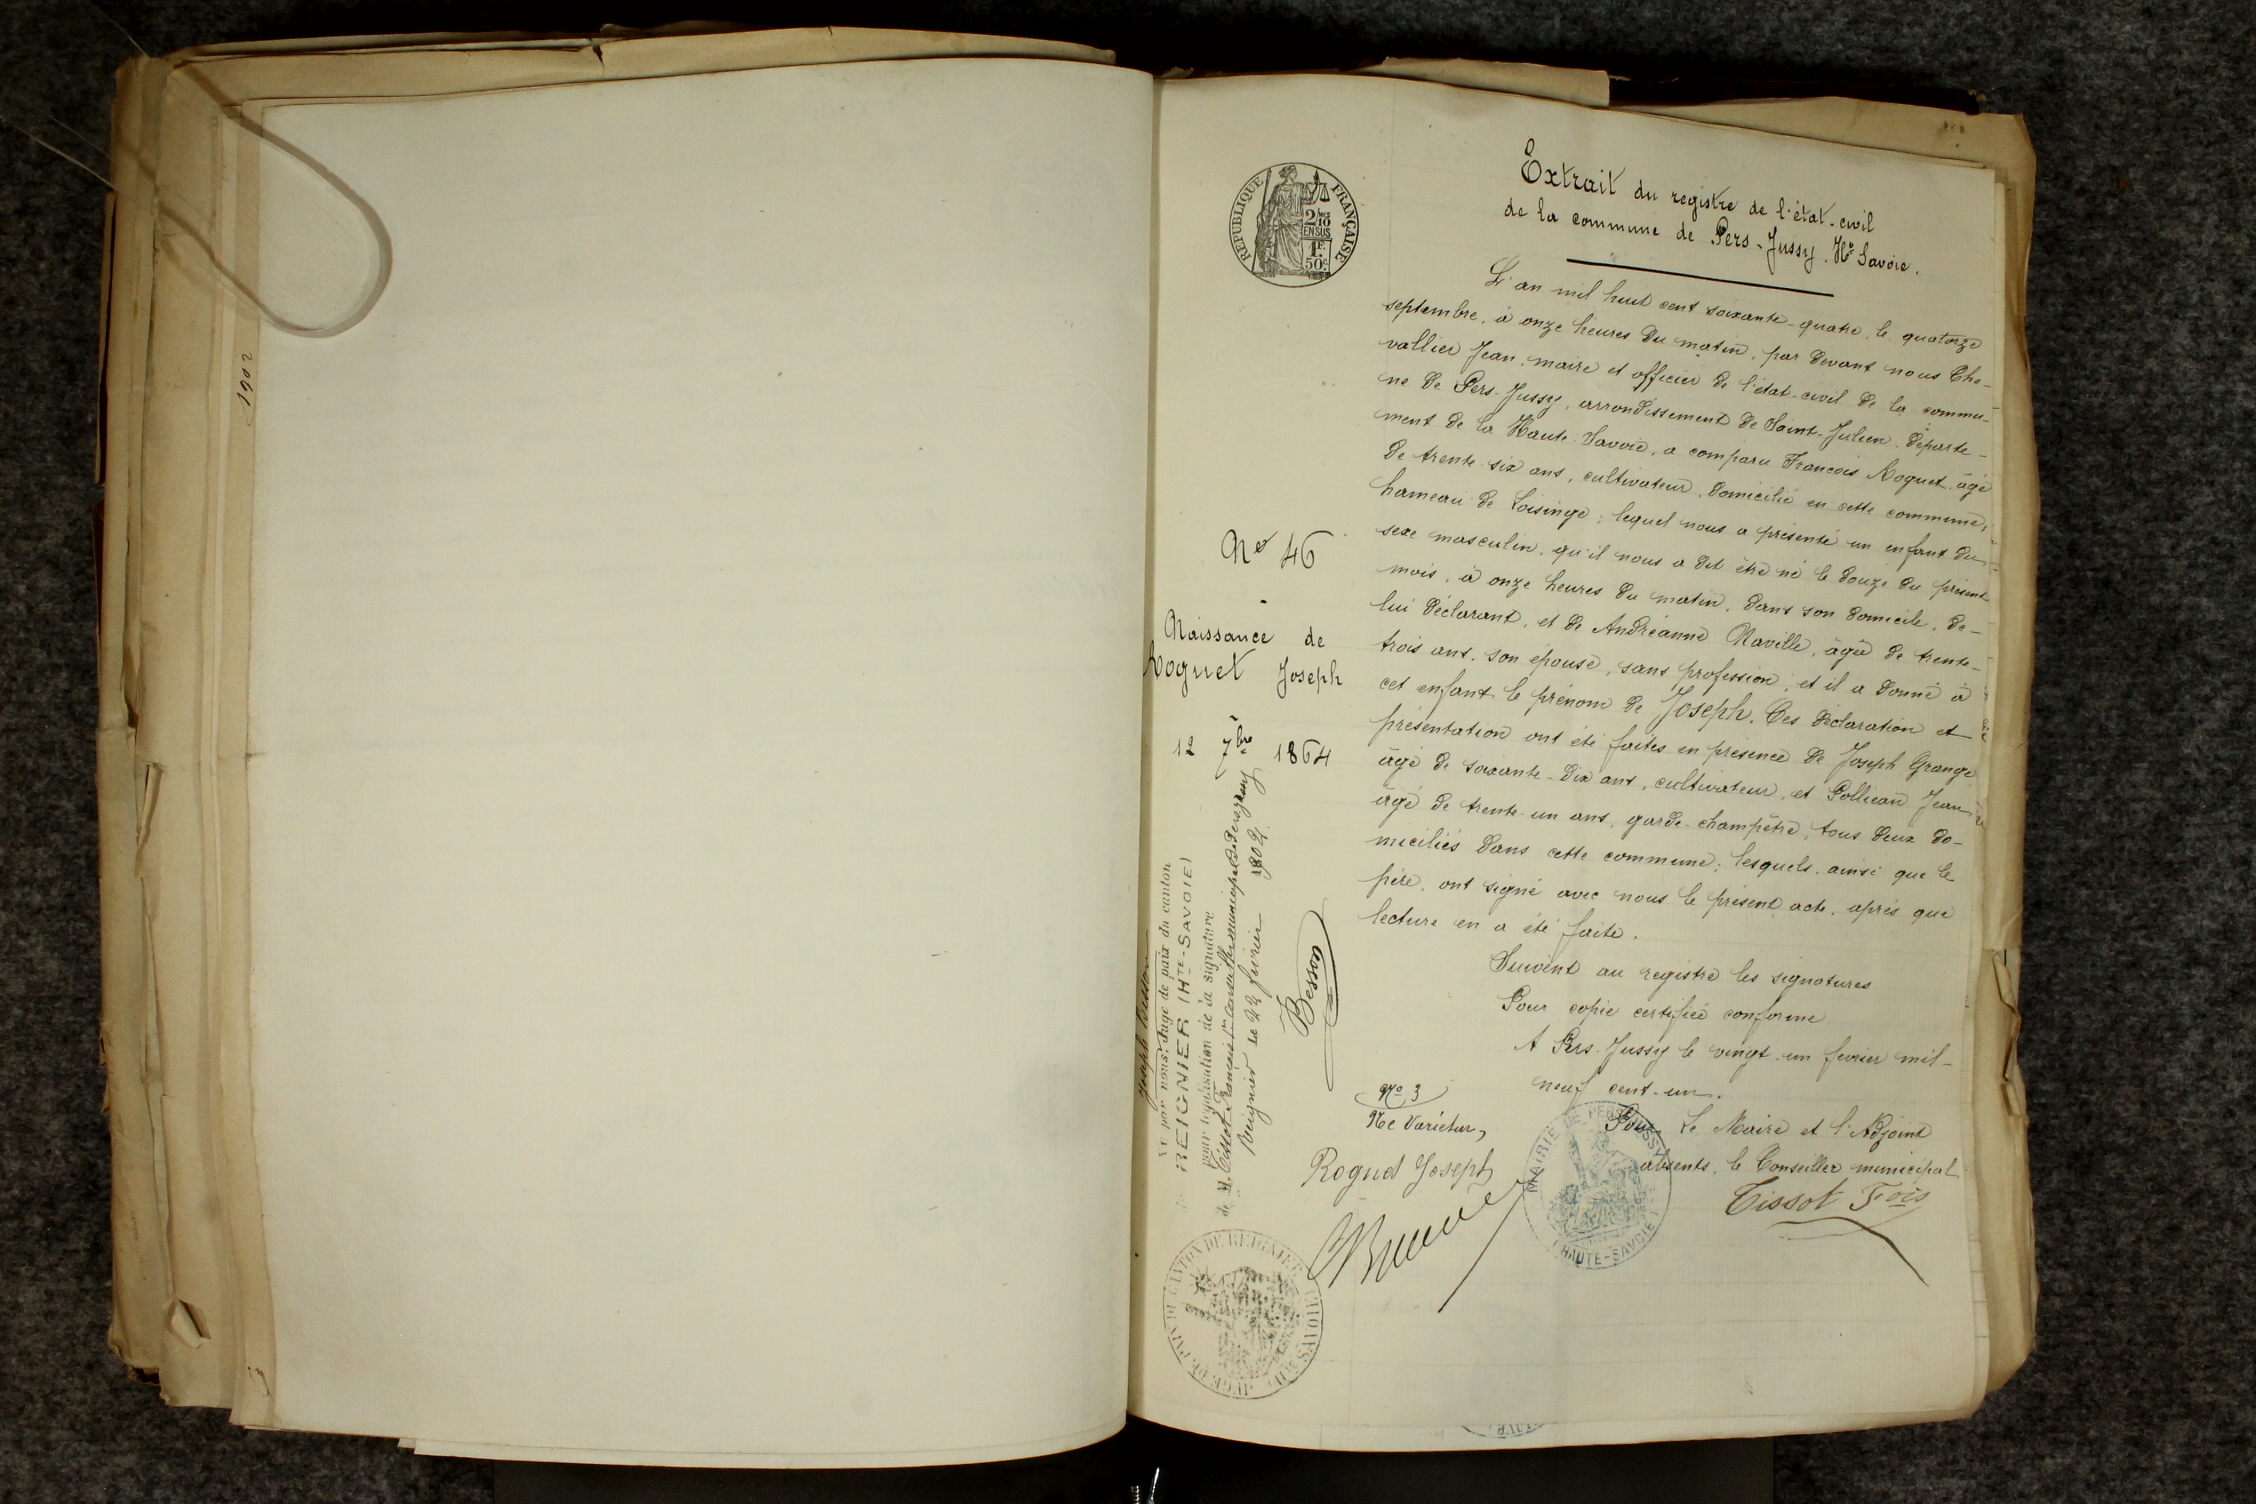 1902
RÉPUBLIQUE FRANÇAISE
2/10
EN SUS
1F.
50c.
Extrait du registre de l'état-civil
de la commune de Pers-Jussy. Hte Savoie.
L'an mil huit cent soixante-quatre, le quatorze
septembre, à onze heures du matin, par devant nous Che-
vallier Jean, maire et officier de l'état-civil de la commu-
ne de Pers-Jussy, arrondissement de Saint-Julien, départe-
ment de la Haute-Savoie, a comparu François Roguet, âgé
de trente six ans, cultivateur, domicilié en cette commune,
hameau de Loisinge; lequel nous a présenté un enfant du
sexe masculin, qu'il nous a dit être né le douze du présent
mois, à onze heures du matin, dans son domicile, de
lui déclarant, et de Andréanne Naville, âgée de trente-
trois ans, son épouse, sans profession, et il a donné à
cet enfant le prénom de Joseph. Ces déclaration et
présentation ont été faites en présence de Joseph Grange
âgé de soixante-dix ans, cultivateur, et Pollican Jean,
âgé de trente-un ans, garde-champêtre, tous deux do-
miciliés dans cette commune; lesquels, ainsi que le
père, ont signé avec nous le présent acte, après que
lecture en a été faite.
Suivent au registre les signatures
Pour copie certifiée conforme
A Pers-Jussy le vingt-un fevrier mil-
neuf cent-un.
Pour Le Maire et l'Adjoint
absents, le Conseiller municipal
Tissot Fois
MAIRIE DE PERS-JUSSY
(HAUTE-SAVOIE)
No 46
Naissance de
Roguet Joseph
12 7bre 1864
Joseph Besson
Vu par nous, Juge de paix du canton
de REIGNIER (HTE-SAVOIE)
pour légalisation de la signature
de M. Tissot François 1er conseiller municipal de Pers Jussy
Reignier le 22 février 1902.
Besson
No 3
Ne Varietur,
Roguet Joseph
JUGE DE PAIX DU CANTON DE REIGNIER
(HTE SAVOIE)